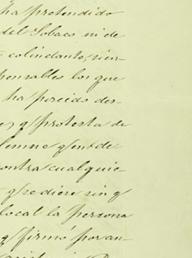 ha pretendido
del Tobaco ni de
colindante, sien
pensables los que
ha parecido des
es y protesta de
lemne q.e ent de
contra cualquie
q.e rediere sin q
local la persona
q.e firmó por an